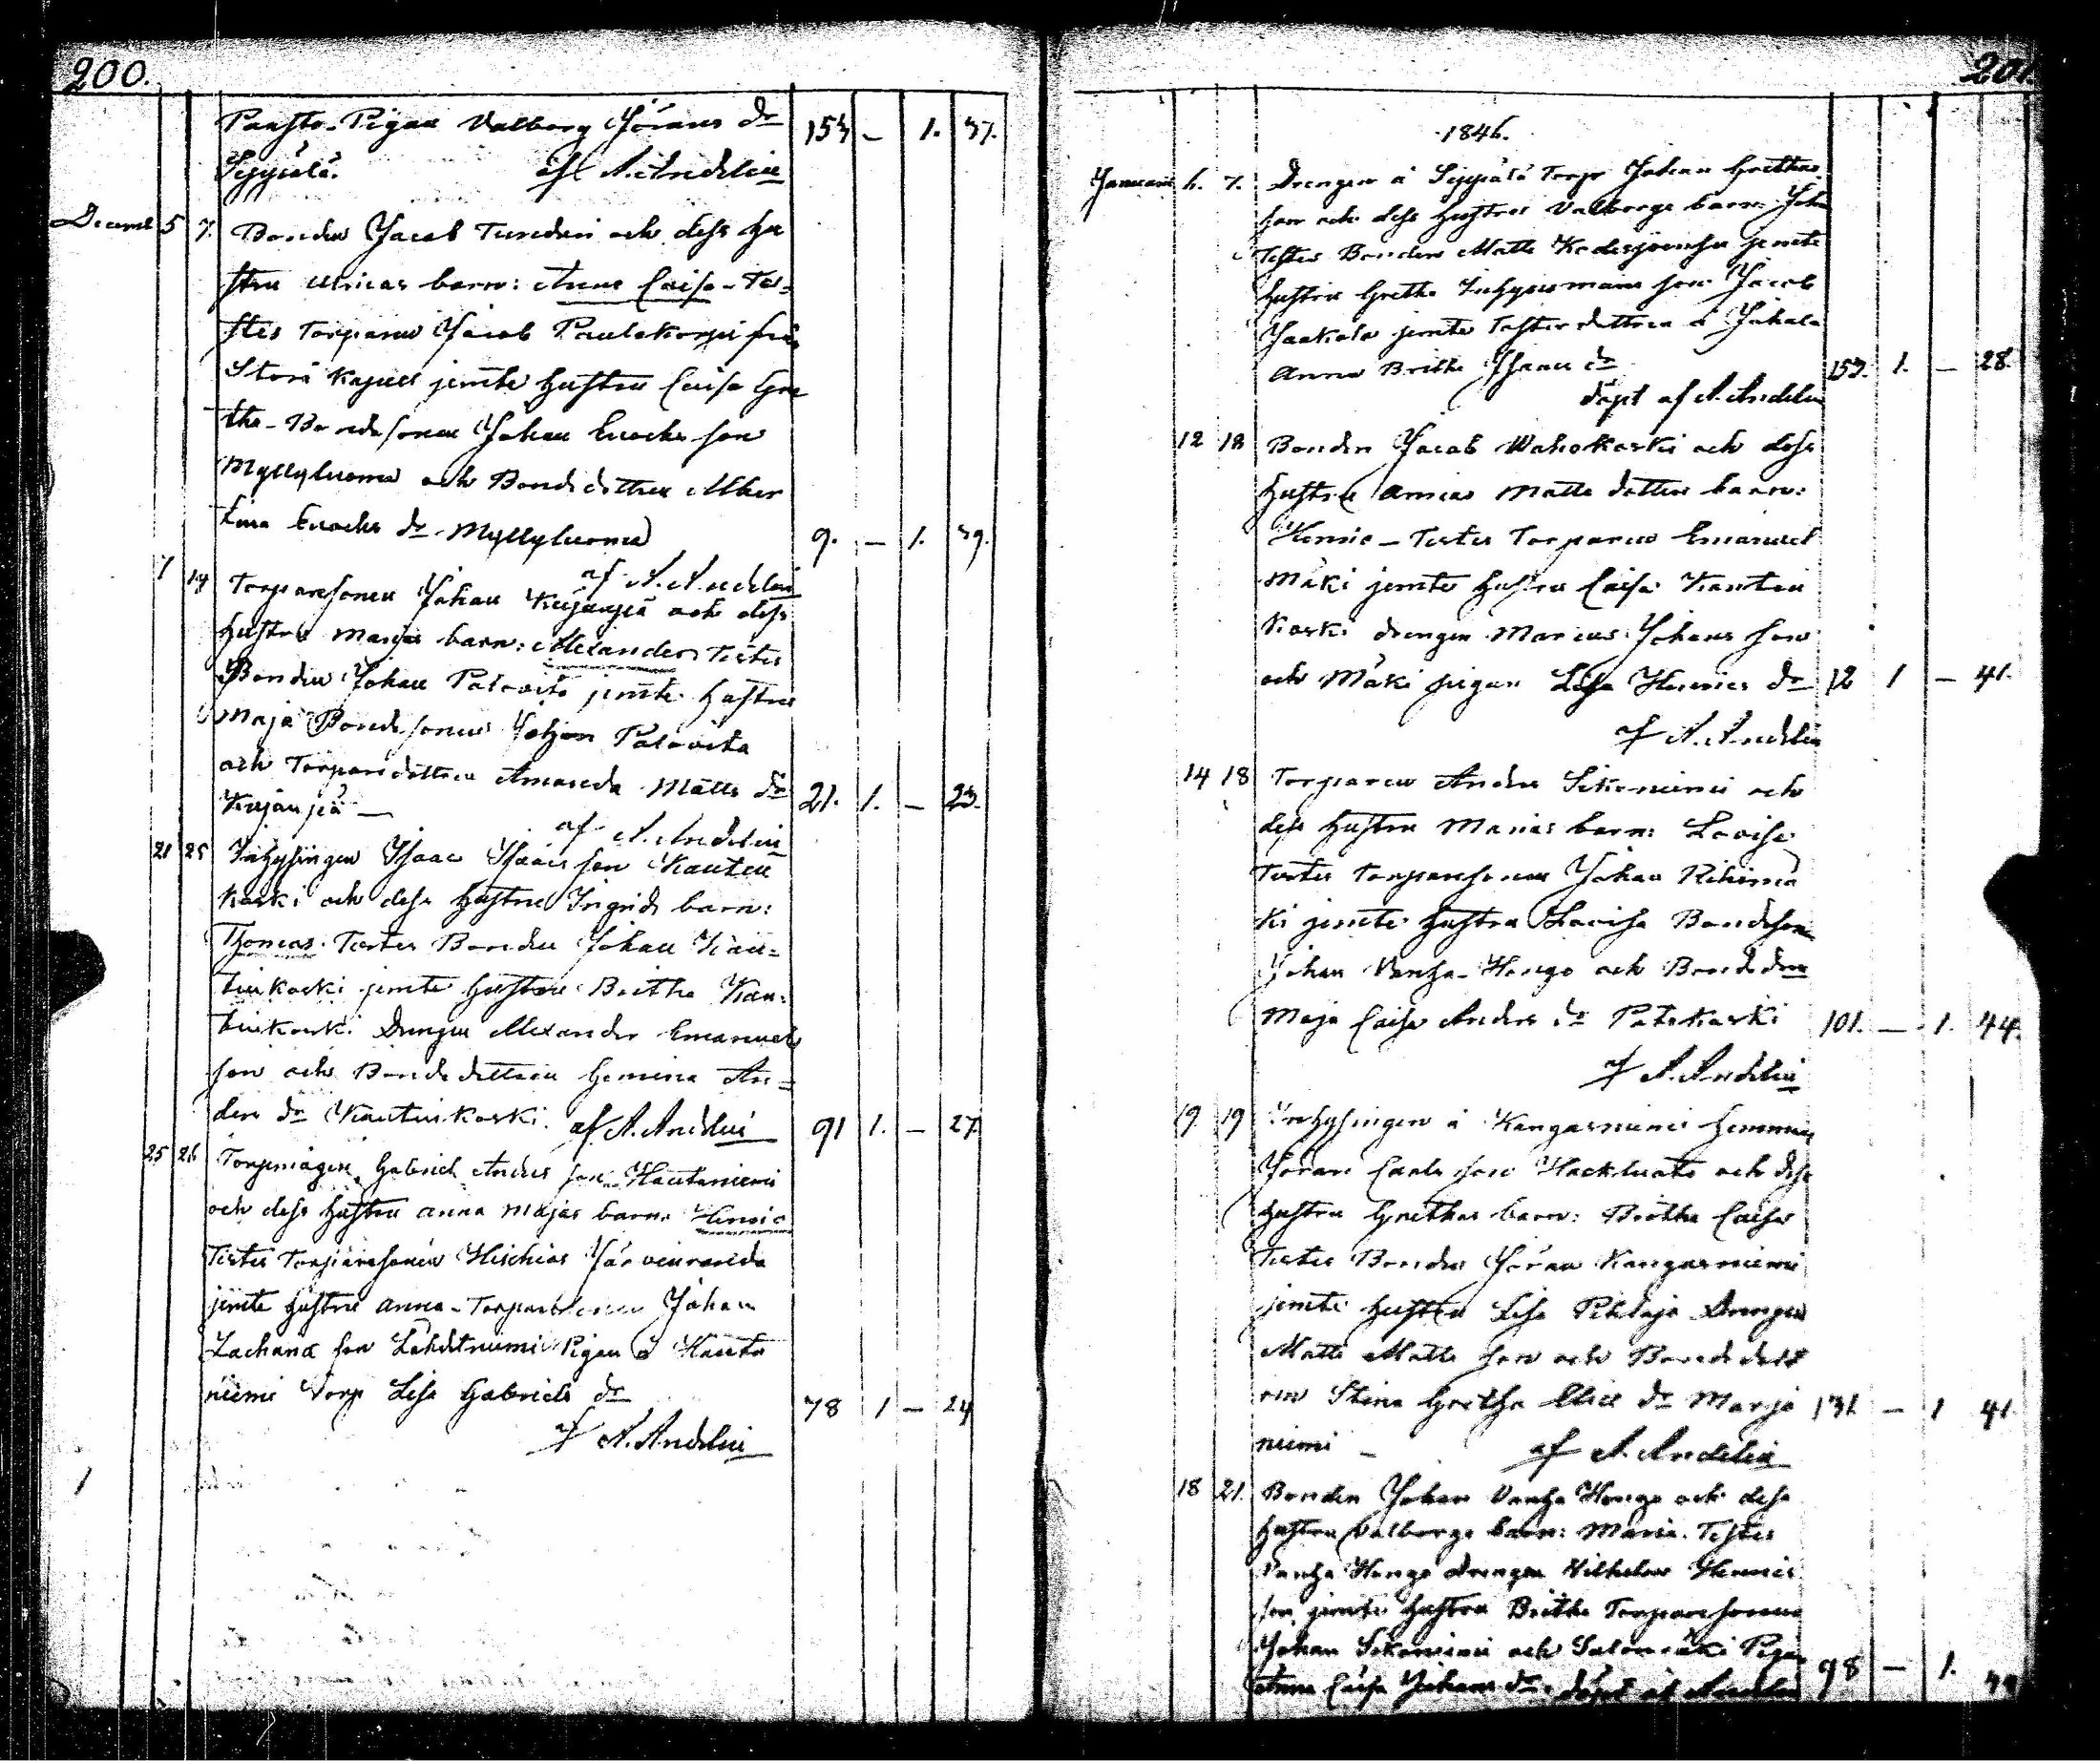 200.
Pansto-Pigan Valborg Jörans dr 153 – 1. 37.
Seppälä. af A. Andelin
Decemb 5 7. Bonden Jacob Tunden och dess hu
stru Ulricas barn: Anna Caisa – Te
stes Torparen Jacob Paulakorpi från
Storå Kapell jemte hustru Caisa Gre
tha – Bondesonen Johan Enochs son
Myllyluoma och Bondedottren Alber
tina Enochs dr Myllyluoma 9. – 1. 39.
af A. Andelin
7 14 Torparesonen Johan Kujanpä och dess
hustru Marias barn: Alexander Testes
Bonden Johan Palovita jemte hustru
Maja Bondesonen Johan Palovita
och Torparedottren Amanda Matts dr
Kujanpä — 21. 1. – 23.
af A. Andelin
21 25 Inhysingen Isaac Isaacs son Kauten
Koski och dess hustru Ingrids barn:
Thomas. Testes Bonden Johan Kau=
tinkoski jemte hustru Britha Kau=
tinkoski Drengen Alexander Emanuels
son och Bondedottren Gemina An=
ders dr Kautinkoski. af A. Andelin 91 1. – 27.
25 26 Torpmågen Gabriel Anders son Hautaniemi
och dess hustru Anna Majas barn: Henric
Testes Torparesonen Hischias Järvenranda
jemte hustru Anna – Torparesonen Johan
Zachariæ son Lähdeniemi Pigan å Hauta
niemi Torp Lisa Gabriels dr 78 1 – 24
af A. Andelin
201.
1846.
Januari 6. 7. Drengen å Seppälä Torp Johan Grethas
son och dess hustrus Valborgs barn: Joha
Testes Bonden Matts Kadesjoensu jemte
hustru Gretha Inhysesmans son Jacob
Jaakola jemte Testes dottren å Jakala
Anna Britha Isaacs dr 153. 1. – 28.
döpt af A. Andelin
12 18 Bonden Jacob Wahokoski och dess
hustru Annas Matts dotters barn:
Henric – Testes Torparen Emanuel
Mäki jemte hustru Caisa Kauten
Koski drengen Marcus Johans son
och Mäki pigan Lisa Henrics dr 12 1 – 41.
af A. Andelin
14 18 Torparen Anders Sikaniemi och
dess hustru Marias barn: Lovisa
Testes Torparesonen Johan Riihimä
ki jemte hustru Lovisa Bondeson
Johan Vanha-Hongo och Bondedr
Maja Caisa Anders dr Patokoski 101. – 1. 44.
af A. Andelin
19. 19 Inhysingen å Kangasniemi hemman
Jöran Carls son Hackluoto och dess
hustru Grethas barn: Britha Caisa
Testes Bonden Jöran Kangasniemi
jemte hustru Lisa Pihlaja Drengen
Matts Matts son och Bondedott
ren Stina Gretha Elias dr Marja 131. – 1 41
niemi – af A. Andelin
18 21. Bonden Johan Vanha Hongo och dess
hustru Valborgs barn: Maria. Testes
Vanha Hongo drengen Wilhelm Henrics
son jemte hustru Britha Torparesonen
Johan Sikaniemi och Salomäki Pigan
Anna Caisa Johans dr. döpt af Andelin 98 – 1.